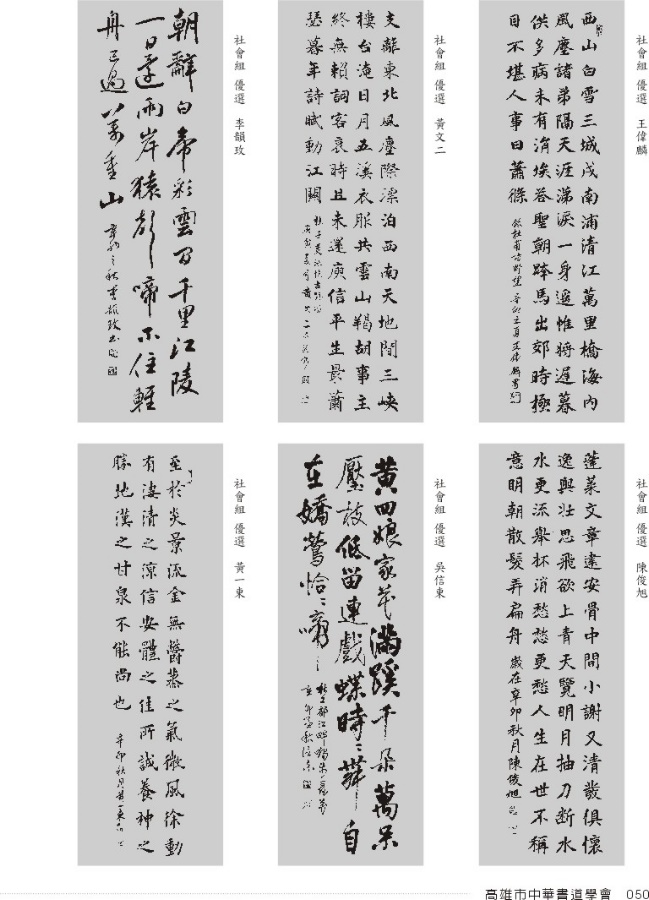 社會組 優選 王偉麟
西山白雪三城戍南浦清江萬里橋海內
風塵諸弟隔天涯涕淚一身遙惟將遲暮
供多病未有涓埃答聖朝跨馬出郊時極
目不堪人事日蕭條 錄杜甫詩野望
社會組 優選 黃文二
支離東北風塵際漂泊西南天地間三峽
樓台淹日月五溪衣服共雲山羯胡事主
終無賴詞客哀時且未還庾信平生最蕭
瑟暮年詩賦動江關
社會組 優選 李韻玫
朝辭白帝彩雲間千里江陵
一日還兩岸猿聲啼不住輕
舟已過萬重山 辛卯之秋李韻玫書
社會組 優選 陳俊旭
蓬萊文章建安骨中間小謝又清發俱懷
逸興壯思飛欲上青天覽明月抽刀断水
水更流舉杯消愁愁更愁人生在世不稱
意明朝散髮弄扁舟 歲在辛卯秋月陳俊旭
社會組 優選 吳信東
黄四娘家花滿蹊千朵萬朵
壓枝低留連戲蝶時〻舞自
在嬌鶯恰〻啼
社會組 優選 黃一東
至於炎景流金無鬱蒸之氣微風徐動
有淒清之涼信安體之佳所誠養神之
勝地漢之甘泉不能尚也 辛卯秋月黃一東
高雄市中華書道學會 050